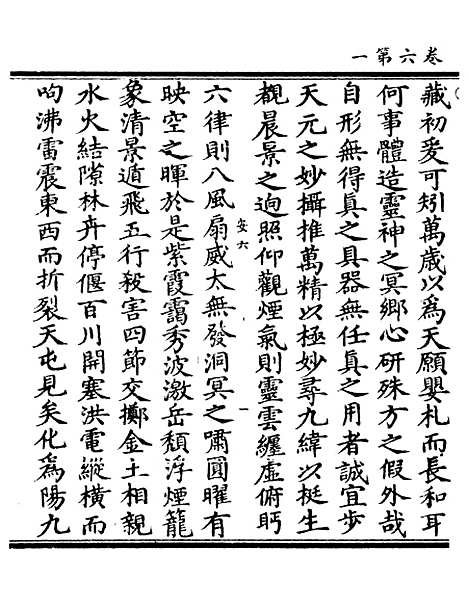 卷六第一
藏初爰可矧萬歲以為天願嬰札而長和耳
何事體造靈神之冥鄉心研殊方之假外哉
自形無得真之具器無任真之用者誠宜步
天元之妙攝推萬精以極妙尋九緯以挺生
覩晨景之迴照仰觀煙氣則靈雲纏虛俯眄
安六 一
六律則八風扇威太無發洞冥之嘯圓曜有
映空之暉於是紫霞靄秀波激岳頹浮煙籠
象清景遁飛五行殺害四節交擲金土相親
水火結隙林卉停偃百川開塞洪電縱橫而
呴沸雷震東西而折裂天屯見矣化為陽九